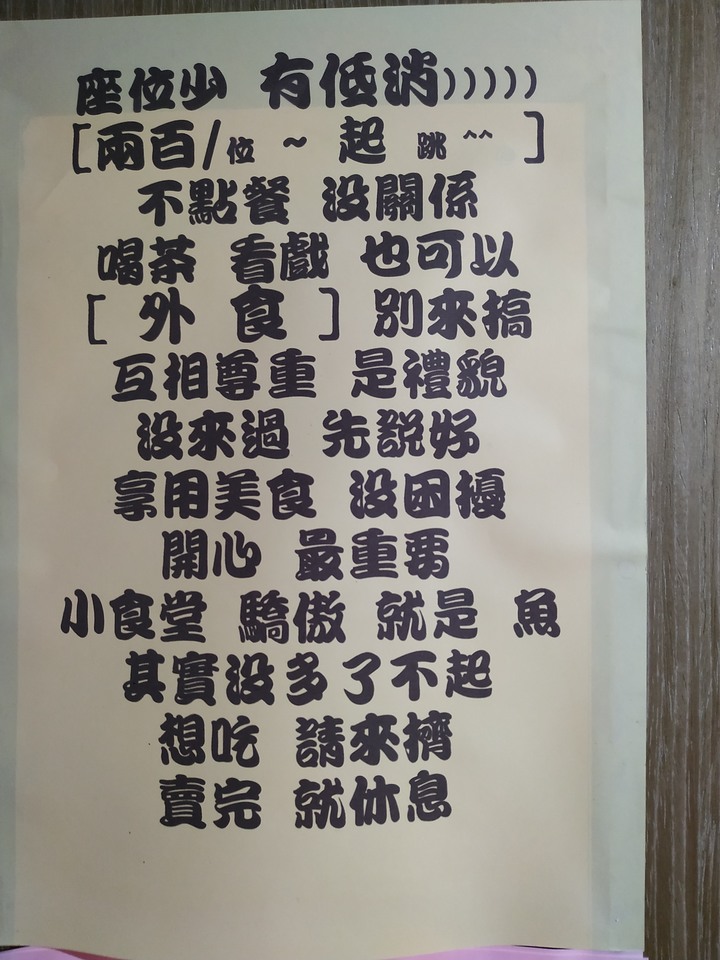 座位少 有低消)))))
[兩百/位 ~ 起 跳 ^^ ]
不點餐 沒關係
喝茶 看戲 也可以
[ 外 食 ] 別來搞
互相尊重 是禮貌
沒來過 先說好
享用美食 沒困擾
開心 最重要
小食堂 驕傲 就是 魚
其實沒多了不起
想吃 請來擠
賣完 就休息